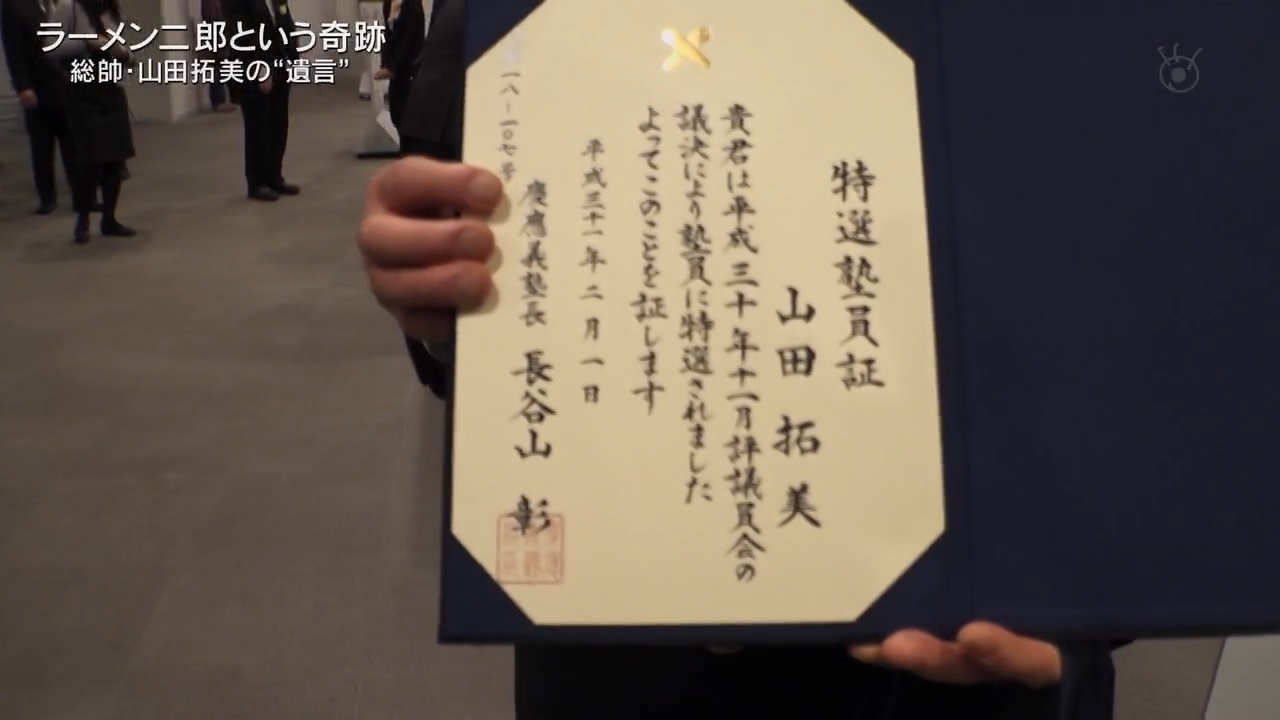 ラーメン二郎という奇跡
総帥・山田拓美の“遺言”
特選塾員証
山田拓美
貴君は平成三十年十一月評議員会の
議決により塾員に特選されました
よってこのことを証します
平成三十一年二月一日
慶應義塾長 長谷山 彰
一八-一〇七号